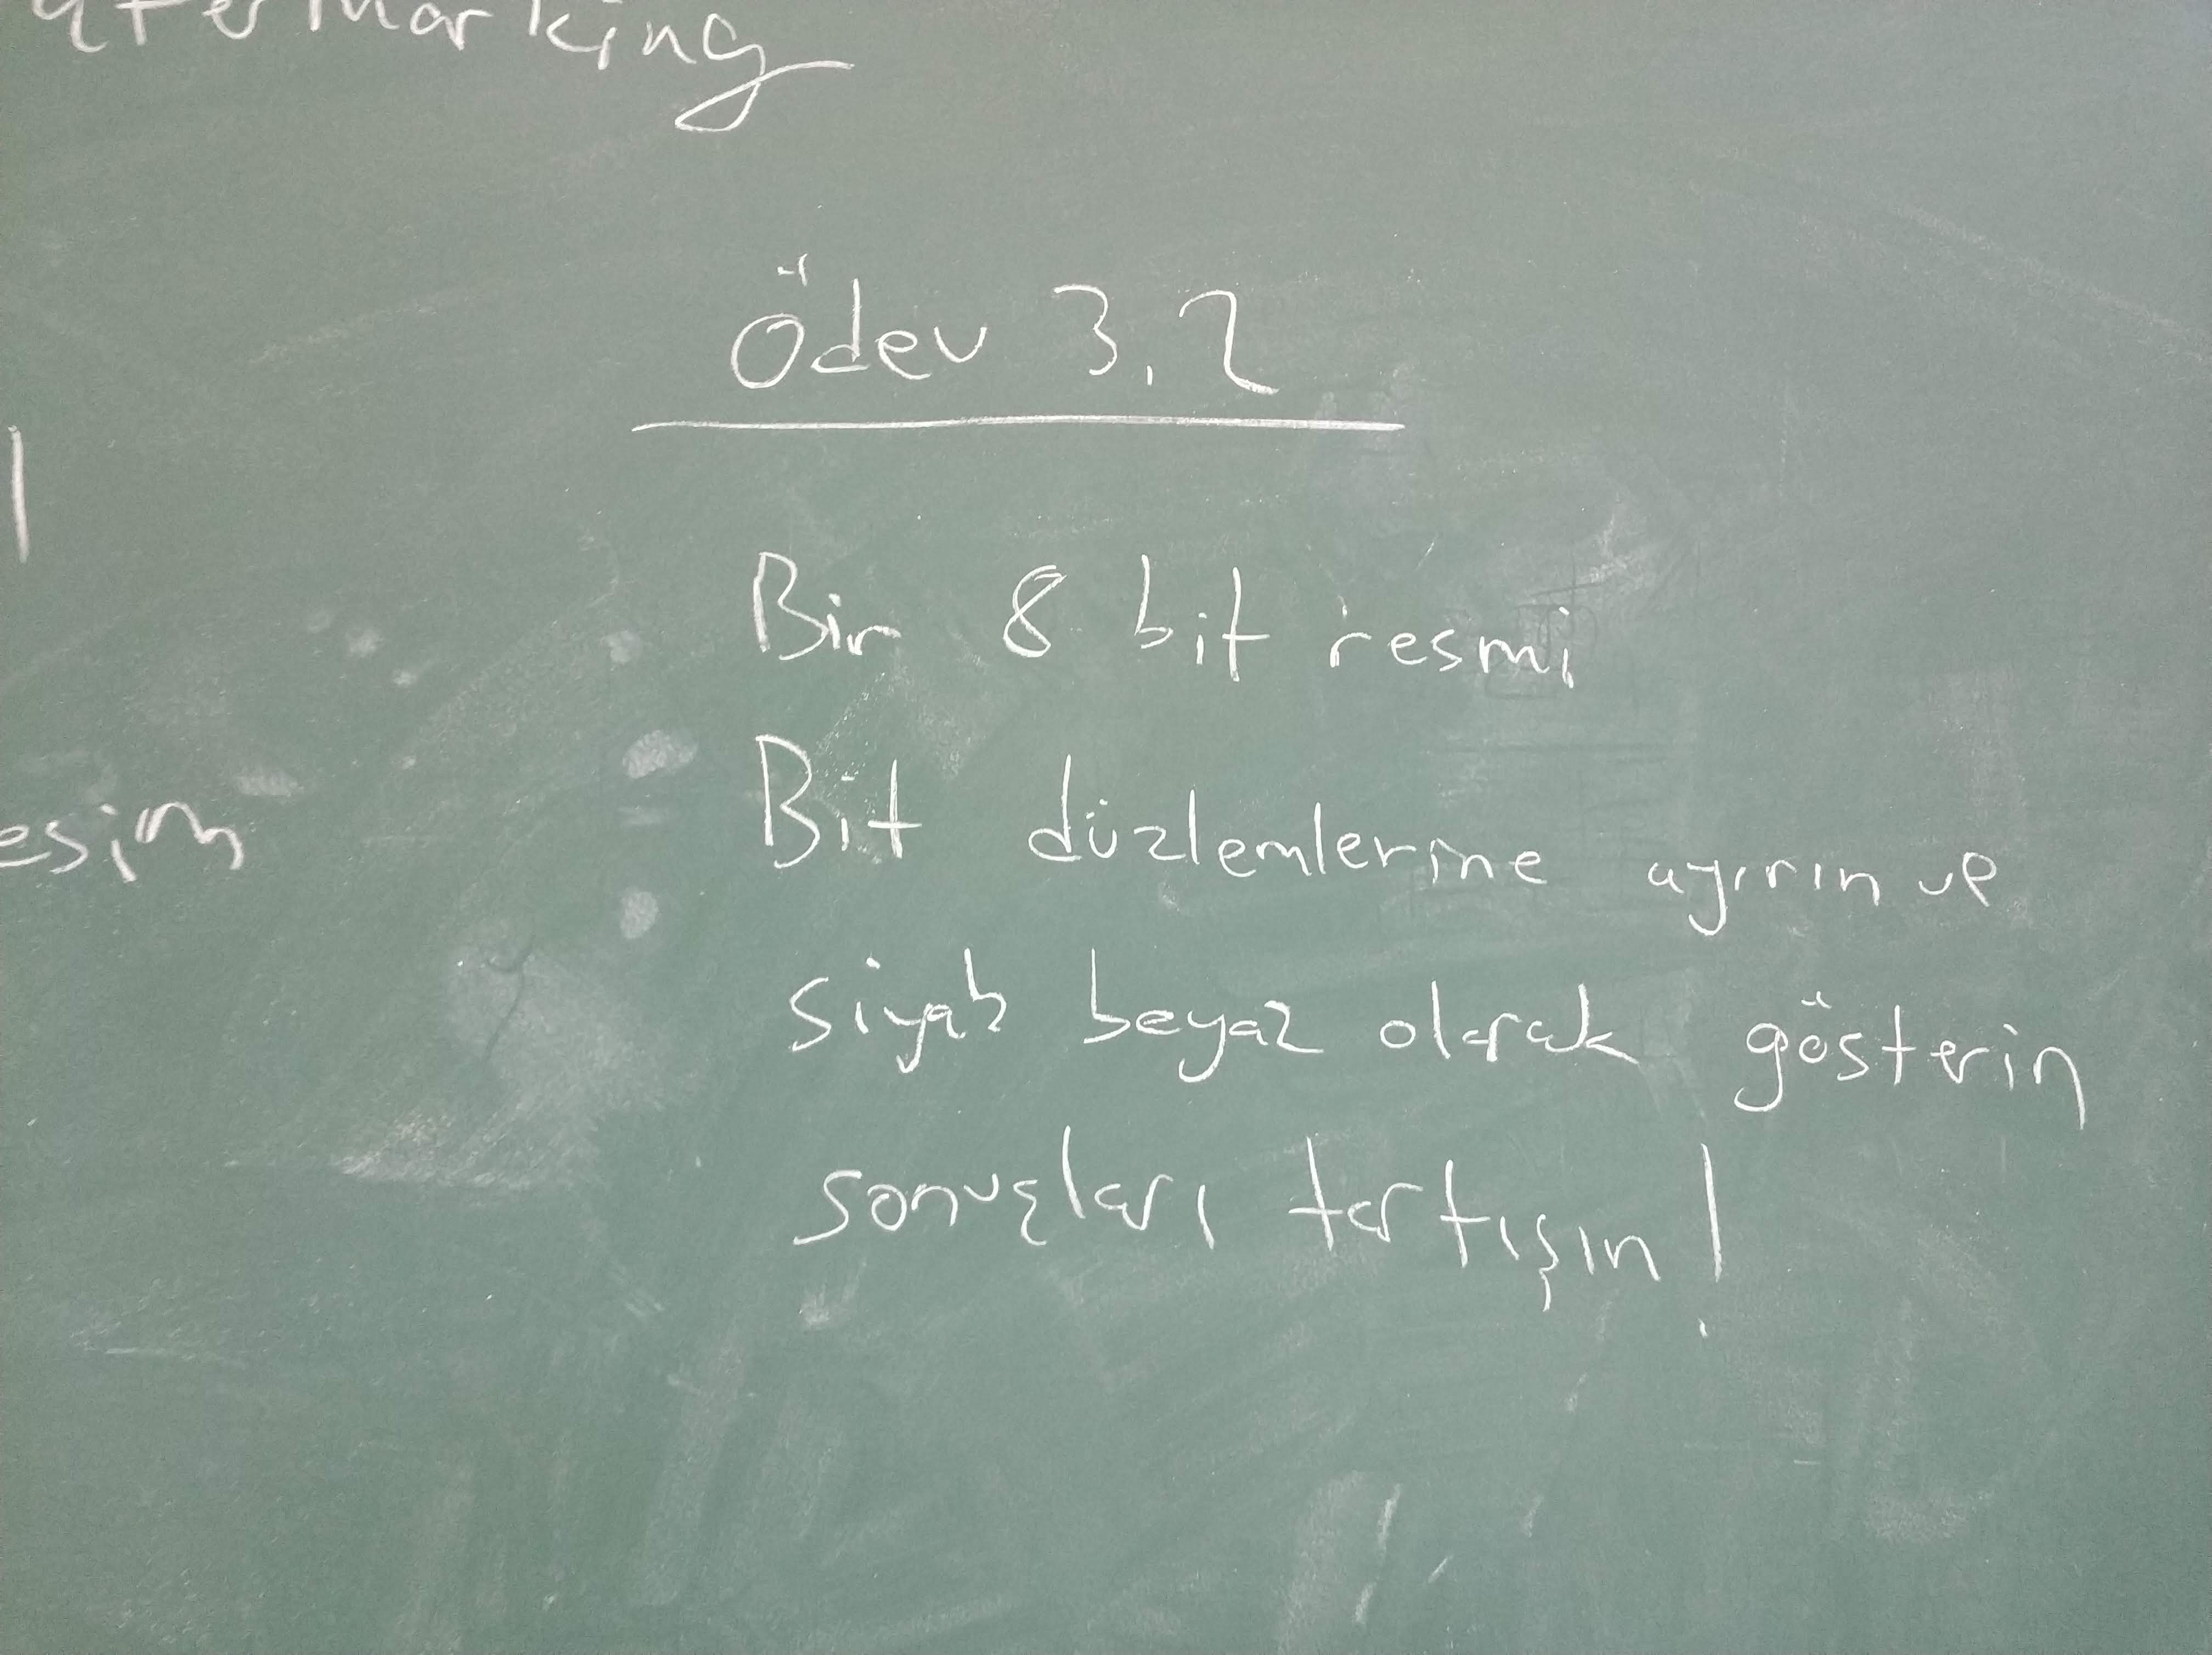 atermarking
Ödev 3.2
Bir 8 bit resmi
esim
Bit düzlemlerine ayırın ve
siyah beyaz olarak gösterin
sonuçları tartışın!